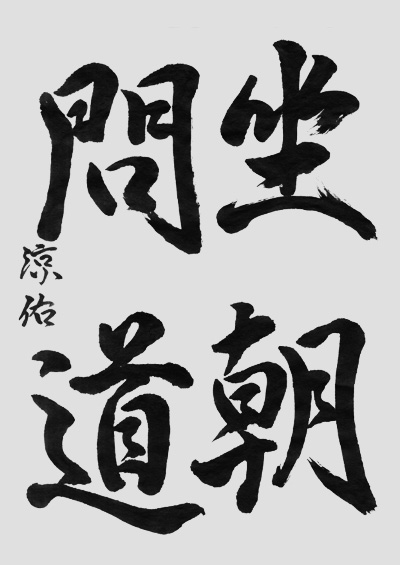 坐朝
問道
涼佑